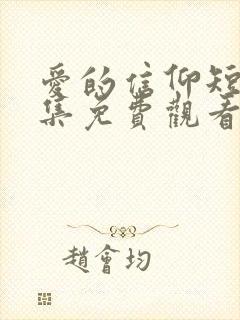 愛的信仰短
集免費觀看
趙會均